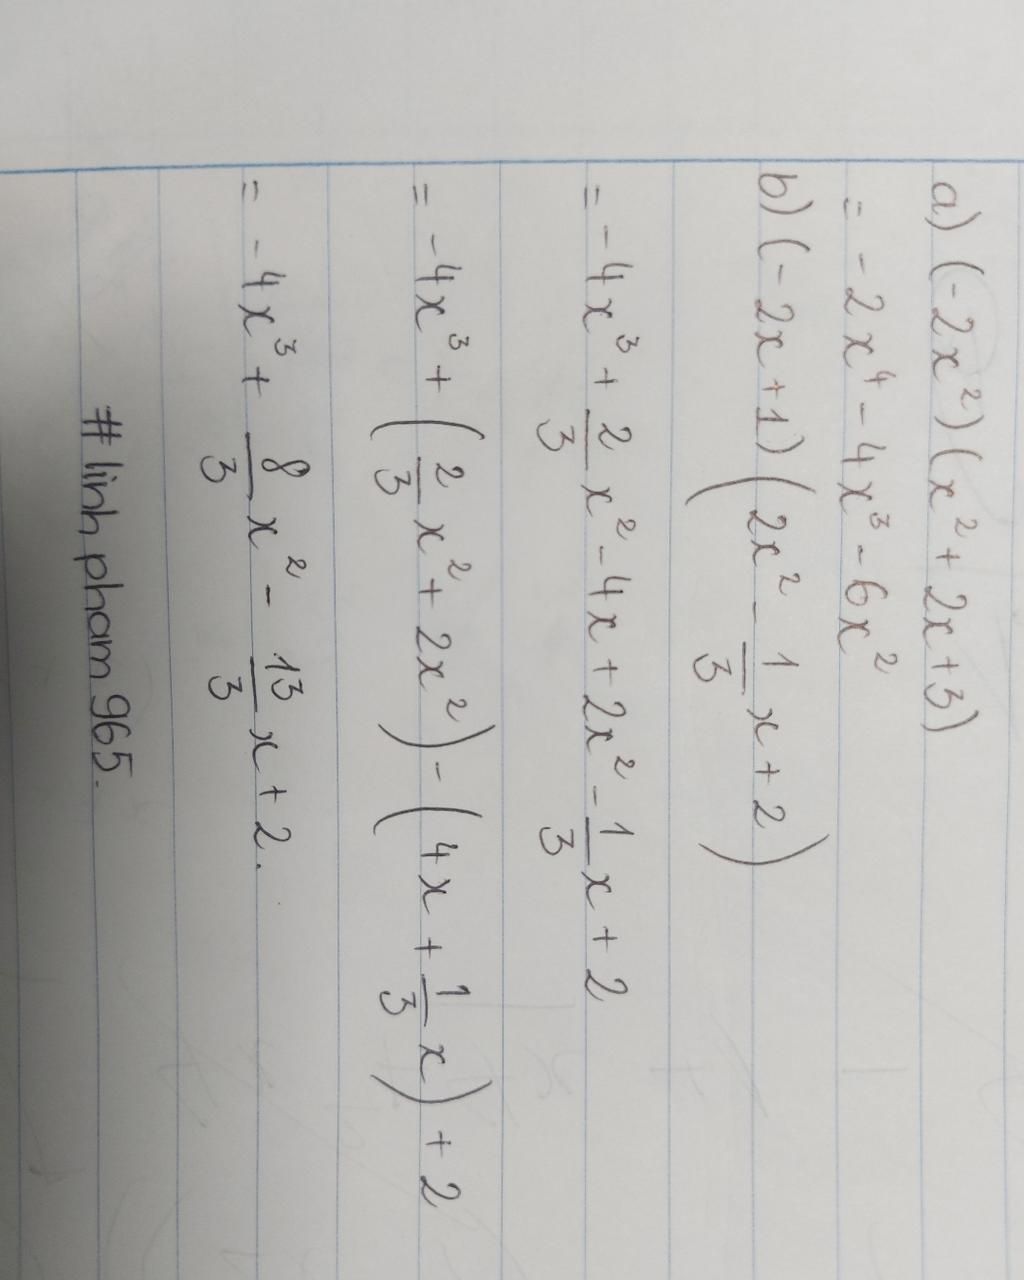 a) (-2x²)(x² + 2x + 3)
= -2x⁴ - 4x³ - 6x²
b) (-2x + 1)(2x² - 1/3 x + 2)
= -4x³ + 2/3 x² - 4x + 2x² - 1/3 x + 2
= -4x³ + (2/3 x² + 2x²) - (4x + 1/3 x) + 2
= -4x³ + 8/3 x² - 13/3 x + 2.
# linh pham 965.